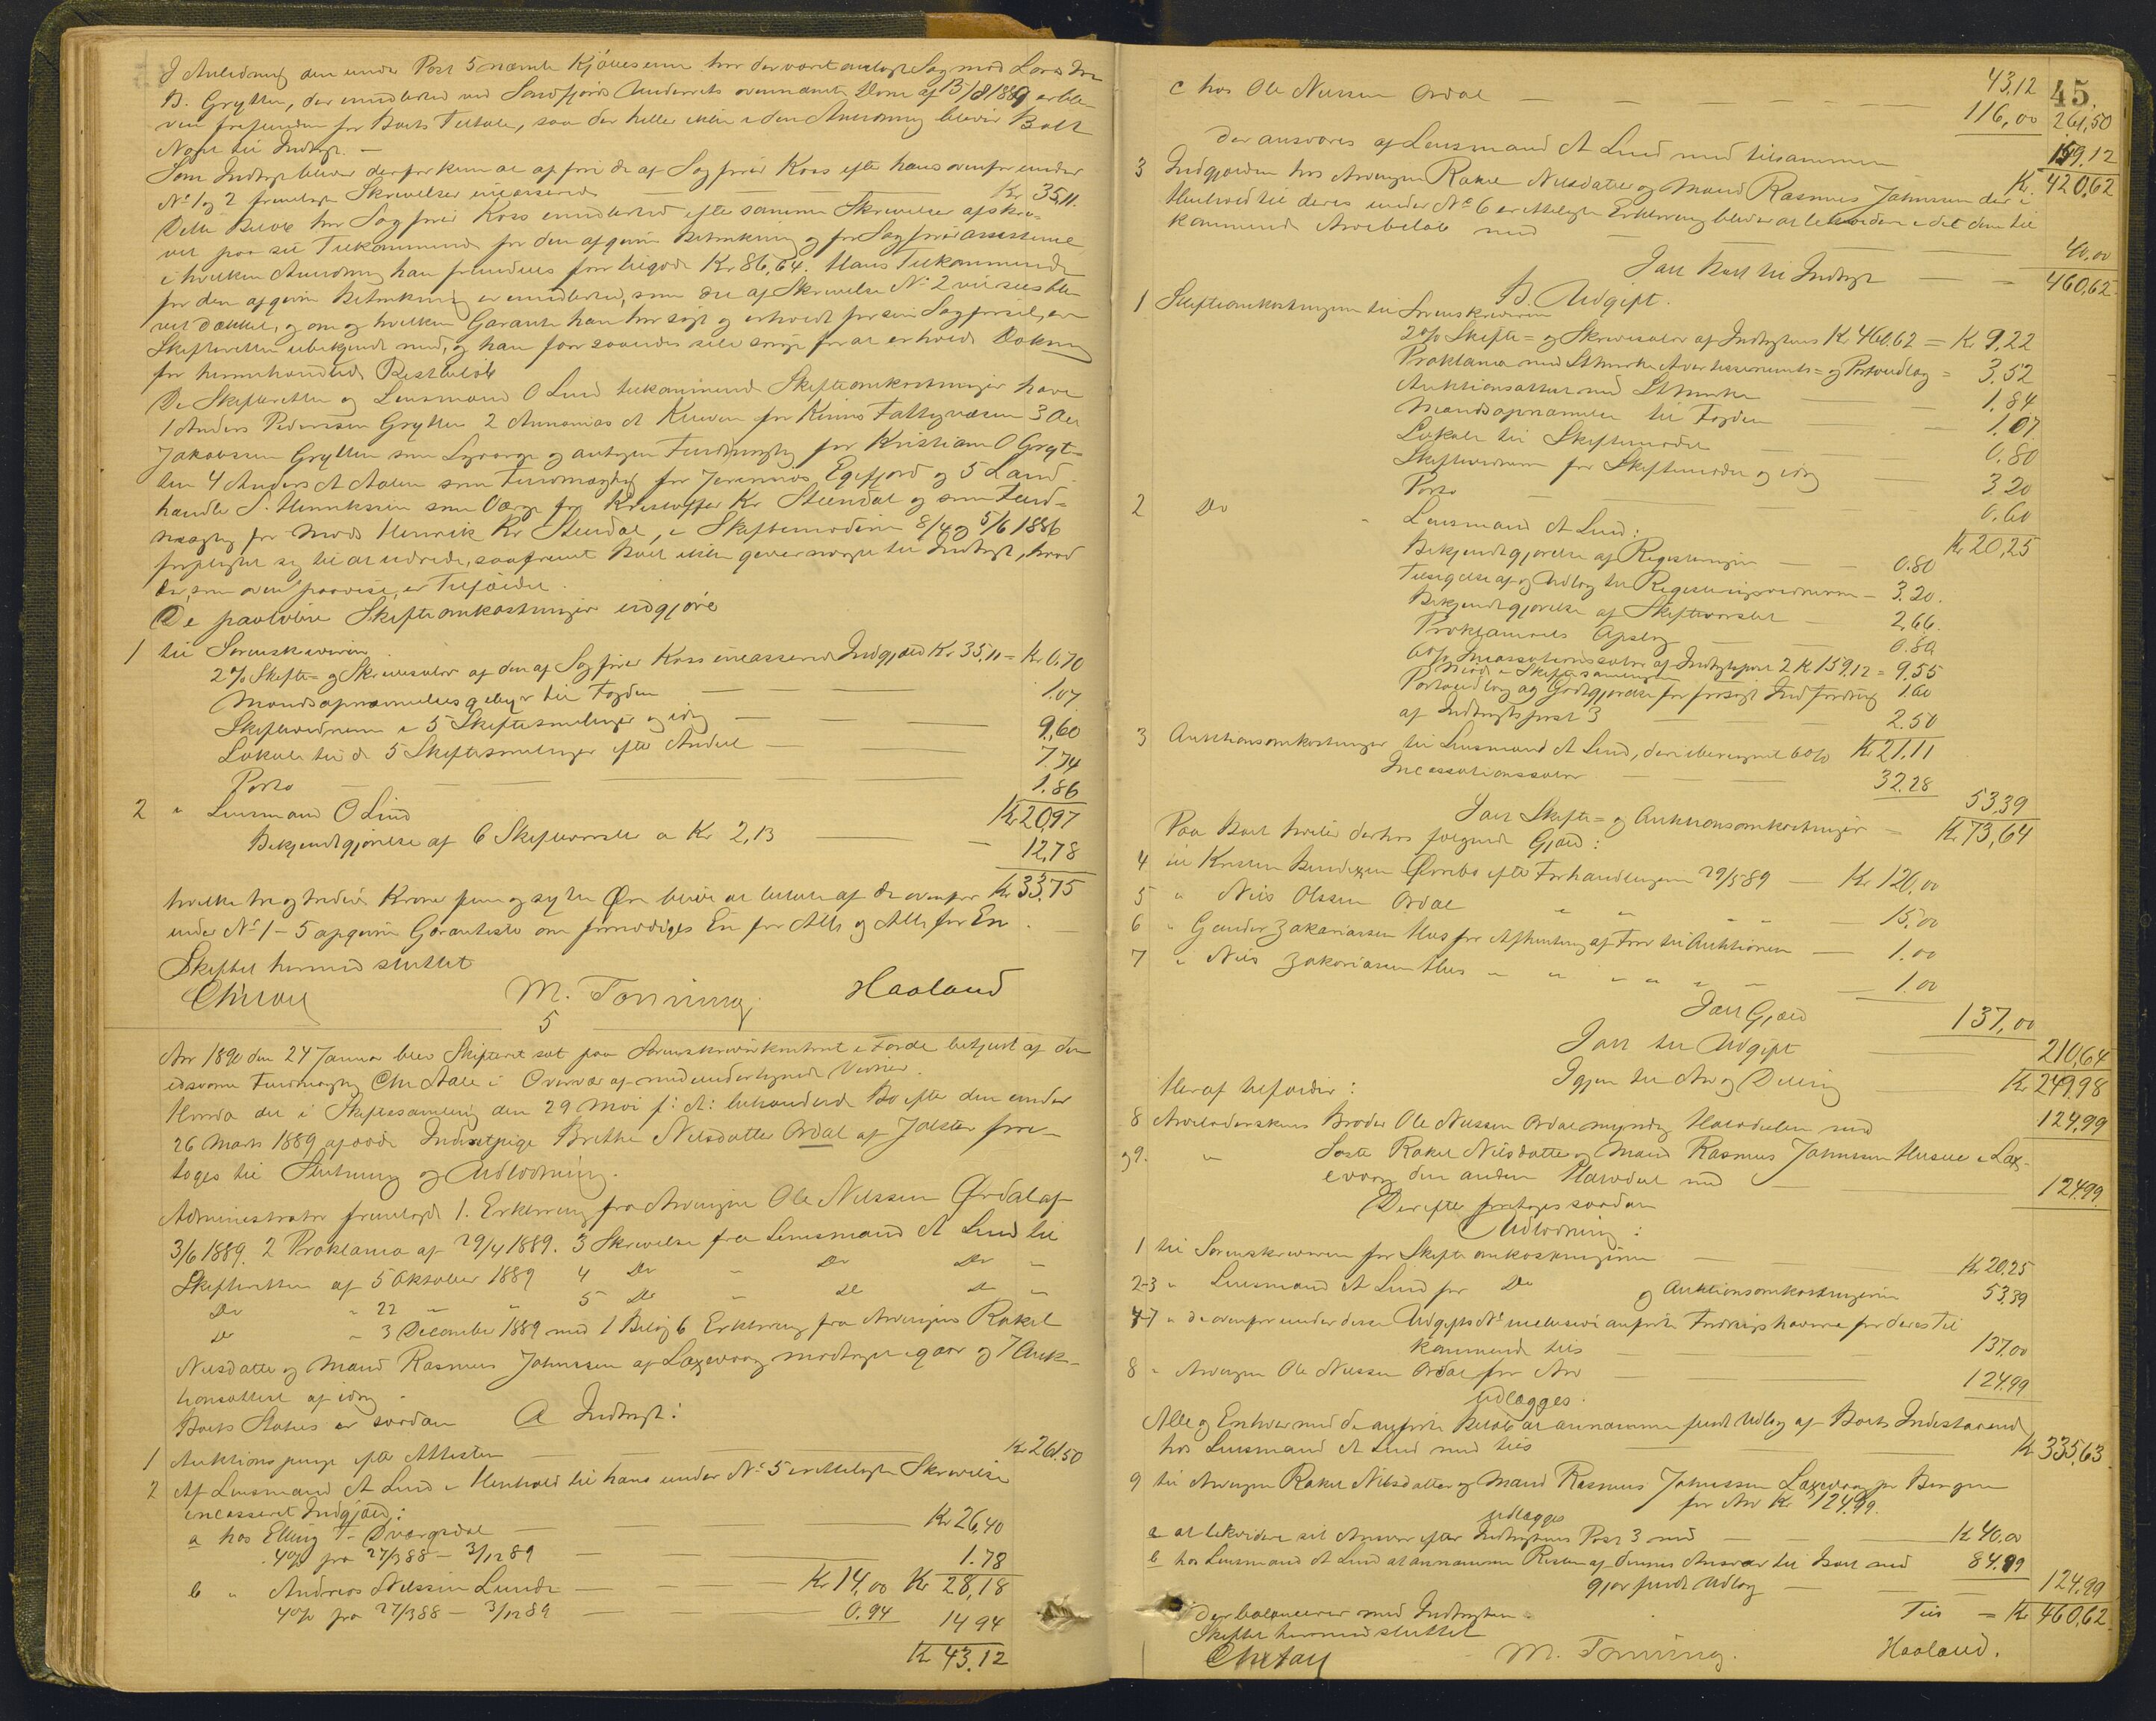 I Anledning den under Post 5 nævnte Kjøbesum har der været anlagt Sag mod Lars
B. Grytten, der imidlertid ved Søndfjords Underrets ovennævnte Dom af 13/8 1889 er ble-
ven frifunden for Boets Tiltale, saa der heller ikke i den Anledning bliver Boet
Noget til Indtægt. –
Som Indtægt bliver derfor kun at opføre de af Sagfører Koss efter hans ovenfor under
No 1 og 2 fremlagte Skrivelser incasserede Kr 35,11.
Dette Beløb har Sagfører Koss imidlertid efter samme Skrivelser afskre-
vet paa sit Tilkommende for den afgivne Betænkning og for Sagførerassistence
i hvilken Anledning han fremdeles har tilgode Kr 86,64. Hans Tilkommende
for den afgivne Betænkning er imidlertid, som det af Skrivelse No 2 vil sees ble-
vet dækket, og om og hvilken Garanti han har søgt og erholdt for sin Sagførsel, er
Skifteretten ubekjendt med, og han faar saaledes selv sørge for at erholde Dækning
for hermeds Restbeløb
De Skifteretten og Lensmand O Lund tilkommende Skifteomkostninger have
1 Anders Pedersen Grytten 2 Annanias A for Kinns Fattigvæsen 3 Ole
Jakobsen Grytten som Lagværge og antagen Fuldmægtig for Kristiane O Gryt-
ten 4 Anders A Aalen som Fuldmægtig for Jeremias Egefjord og 5 Land-
handler S. Henriksen som Værge for Kristoffer Kr Steendal og som Fuld-
mægtig for Mads Henrik Kr Stendal, i Skiftemøderne 8/4 og 5/6 1886
forpligtet sig til at udrede, saafremt Boet ikke gav noget til Indtægt, hvad
der, som oven paavist, er Tilfældet.
De paaløbne Skifteomkostninger udgjøre
1 til Sorenskriveren
2% Skifte- og Skriversalær af den af Sagfører Koss incasserede Indgjæld Kr 35,11 = Kr 0,70
Mandsopnævnelsesgebyr til Fogden — — 1.07
Skiftevidnerne i 5 Skiftesamlinger og idag — — — 9,60
Lokale til de 5 Skiftesamlinger efter Andel — — 7.74
Porto — — — — 1.86
Kr 20,97
2 " Lensmand O Lund
Bekjendtgjørelse af 6 Skiftevarsler a Kr 2,13 — — 12,78
Kr 33,75
hvilke tre og tredive Kroner fem og sytti Øre blive at betale af de ovenfor
under No 1 – 5 opgivne Garantister om fornødiges En for Alle og Alle for En.
Skiftet hermed sluttet
Chr Aall M. Tonning. Haaland
5
Aar 1890 den 24 Januar blev Skifteret sat paa Sorenskriverkontoret i Førde betjent af den
edsvorne Fuldmægtig Chr Aall i Overvær af medundertegnede Vidner.
Hvorda det i Skiftesamling den 29 Mai f: A: behandlede Bo efter den under
26 Marts 1889 afdøde Indsatpige Brithe Nilsdatter Ordal af Jølster fore-
toges til Slutning og Udlodning.
Administrator fremlagde 1. Erklæring fra Arvingen Ole Nilssen Ørdal af
3/6 1889. 2 Proklama af 29/4 1889. 3 Skrivelse fra Lensmand A Lund til
Skifteretten af 5 Oktober 1889 4 Do " Do Do "
Do " 22 " " 5 Do " Do Do "
Do " 3 December 1889 med 1 Bilag 6 Erklæring fra Arvingen Rakel
Nilsdatter og Mand Rasmus Johnssen af Laxevaag modtaget igaar og 7 Auk-
tionsattest af idag.
Boets Status er saadan A Indtægt:
1 Auktions penge efter Attesten — — — Kr 261.50
2 Af Lensmand A Lund i Henhold til hans under No 5 irettelagte Skrivelse
incasseret Indgjæld:
a hos Elling T. Dvergsdal — — Kr 26,40
4% fra 27/3 88 – 3/12 89 — — 1.78
b " Andreas Nilssen Lunde — — Kr 14,00 Kr 28,18
4% fra 27/3 88 – 3/12 89 — — 0.94 14 94
Kr 43.12
45.
43,12
c hos Ole Nilssen Ordal — — — 116,00 261,50
der ansvares af Lensmand A Lund med tilsammen 159,12
Kr. 420,62
3 Indgjælden hos Arvingen Rakel Nilsdatter og Mand Rasmus Johnssen der i
Henhold til deres under No 6 irettelagte Erklæring bliver at likvidere i det dem til-
kommende Arvebeløb med — — — 40,00
Ialt Boets til Indtægt — — 460,62
B. Udgift.
1 Skifteomkostninger til Sorenskriveren
2% Skifte- og Skriversalær af Indtægtens Kr 460.62 = Kr 9,22
Proklama med Stmærke Avertissements- og Portoudlæg = 3.52
Auktionsattest med Stmærke — 1,84
Mandsopnævnelse til Fogden — 1.07
Lokale til Skiftemødet — 0.80
Skiftevidnerne for Skiftemødet og idag — 3.20
Porto — — — 0.60
Kr 20,25
2 Do " Lensmand A Lund:
Bekjendtgjørelse af Registringen — — 0.80
Tilsigelse af og Udlæg til Registringsvidnerne – 3.20.
Bekjendtgjørelse af Skiftevarslet — 2,66.
Proklamaets Opslag — 0.80
6% Incassationssalær af Indtægtspost 2 Kr 159,12 = 9.55
Møde i Skiftesamlingen
Portoudlæg og Godtgjørelse for forsøgt Indfordring 1.60
af Indtægtspost 3 — — 2.50
Kr 21.11
3 Auktionsomkostninger til Lensmand A Lund, deri iberegnet 6%
Incassationssalær — — 32.28
53.39
Ialt Skifte- og Auktionsomkostninger — Kr 73,64
Paa Boet hviler derhos følgende Gjæld:
4 til Kristen Bendixen efter Forhandlingen 29/5 89 — Kr 120,00
5 " Nils Olssen Ordal " " " " — 15.00
6 " Gander Zakariassen Hus for Afhentning af Faar til Auktionen — 1.00
7 " Nils Zakariassen Hus " " " " " — 1.00
Ialt Gjæld 137,00
Ialt til Udgift — 210,64
Igjen til Arv og Deling Kr 249,98
Heraf tilfalder:
8 Arveladerskens Broder Ole Nilssen Ordal myndig Halvdelen med 124.99
og 9. " Søster Rakel Nilsdatter og Mand Rasmus Johnssen Husene i Lax-
evaag den anden Halvdel med — 124.99.
Derefter foretoges saadan
Udlodning:
1 til Sorenskriveren for Skifteomkostningerne — Kr 20,25
2-3 " Lensmand A Lund for Do og Auktionsomkostningerne 53.39
4-7 " de ovenfor under disse Udgifts No inclusive anførte Fordringshavere for deres Til-
kommende tils — — — 137,00
8 " Arvingen Ole Nilssen Ordal for Arv — 124.99
udlægges.
Alle og Enhver med de anførte Beløb at annamme fuldt Udlæg af Boets Indestaaende
hos Lensmand A Lund med tils — Kr 335,63.
9 til Arvingen Rakel Nilsdatter og Mand Rasmus Johnssen Laxevaag pr Bergen
for Arv Kr 124.99.
udlægges
a at likvidere sit Ansvar efter Indtægtens Post 3 med — Kr 40.00
b hos Lensmand A Lund at annamme Resten af dennes Ansvar til Boet med 84.99
gjør fuldt Udlæg — — 124.99
Tils = Kr 460,62.
Der balancerer med Indtægten.
Skiftet hermed sluttet
Chr Aall M. Tonning. Haaland.